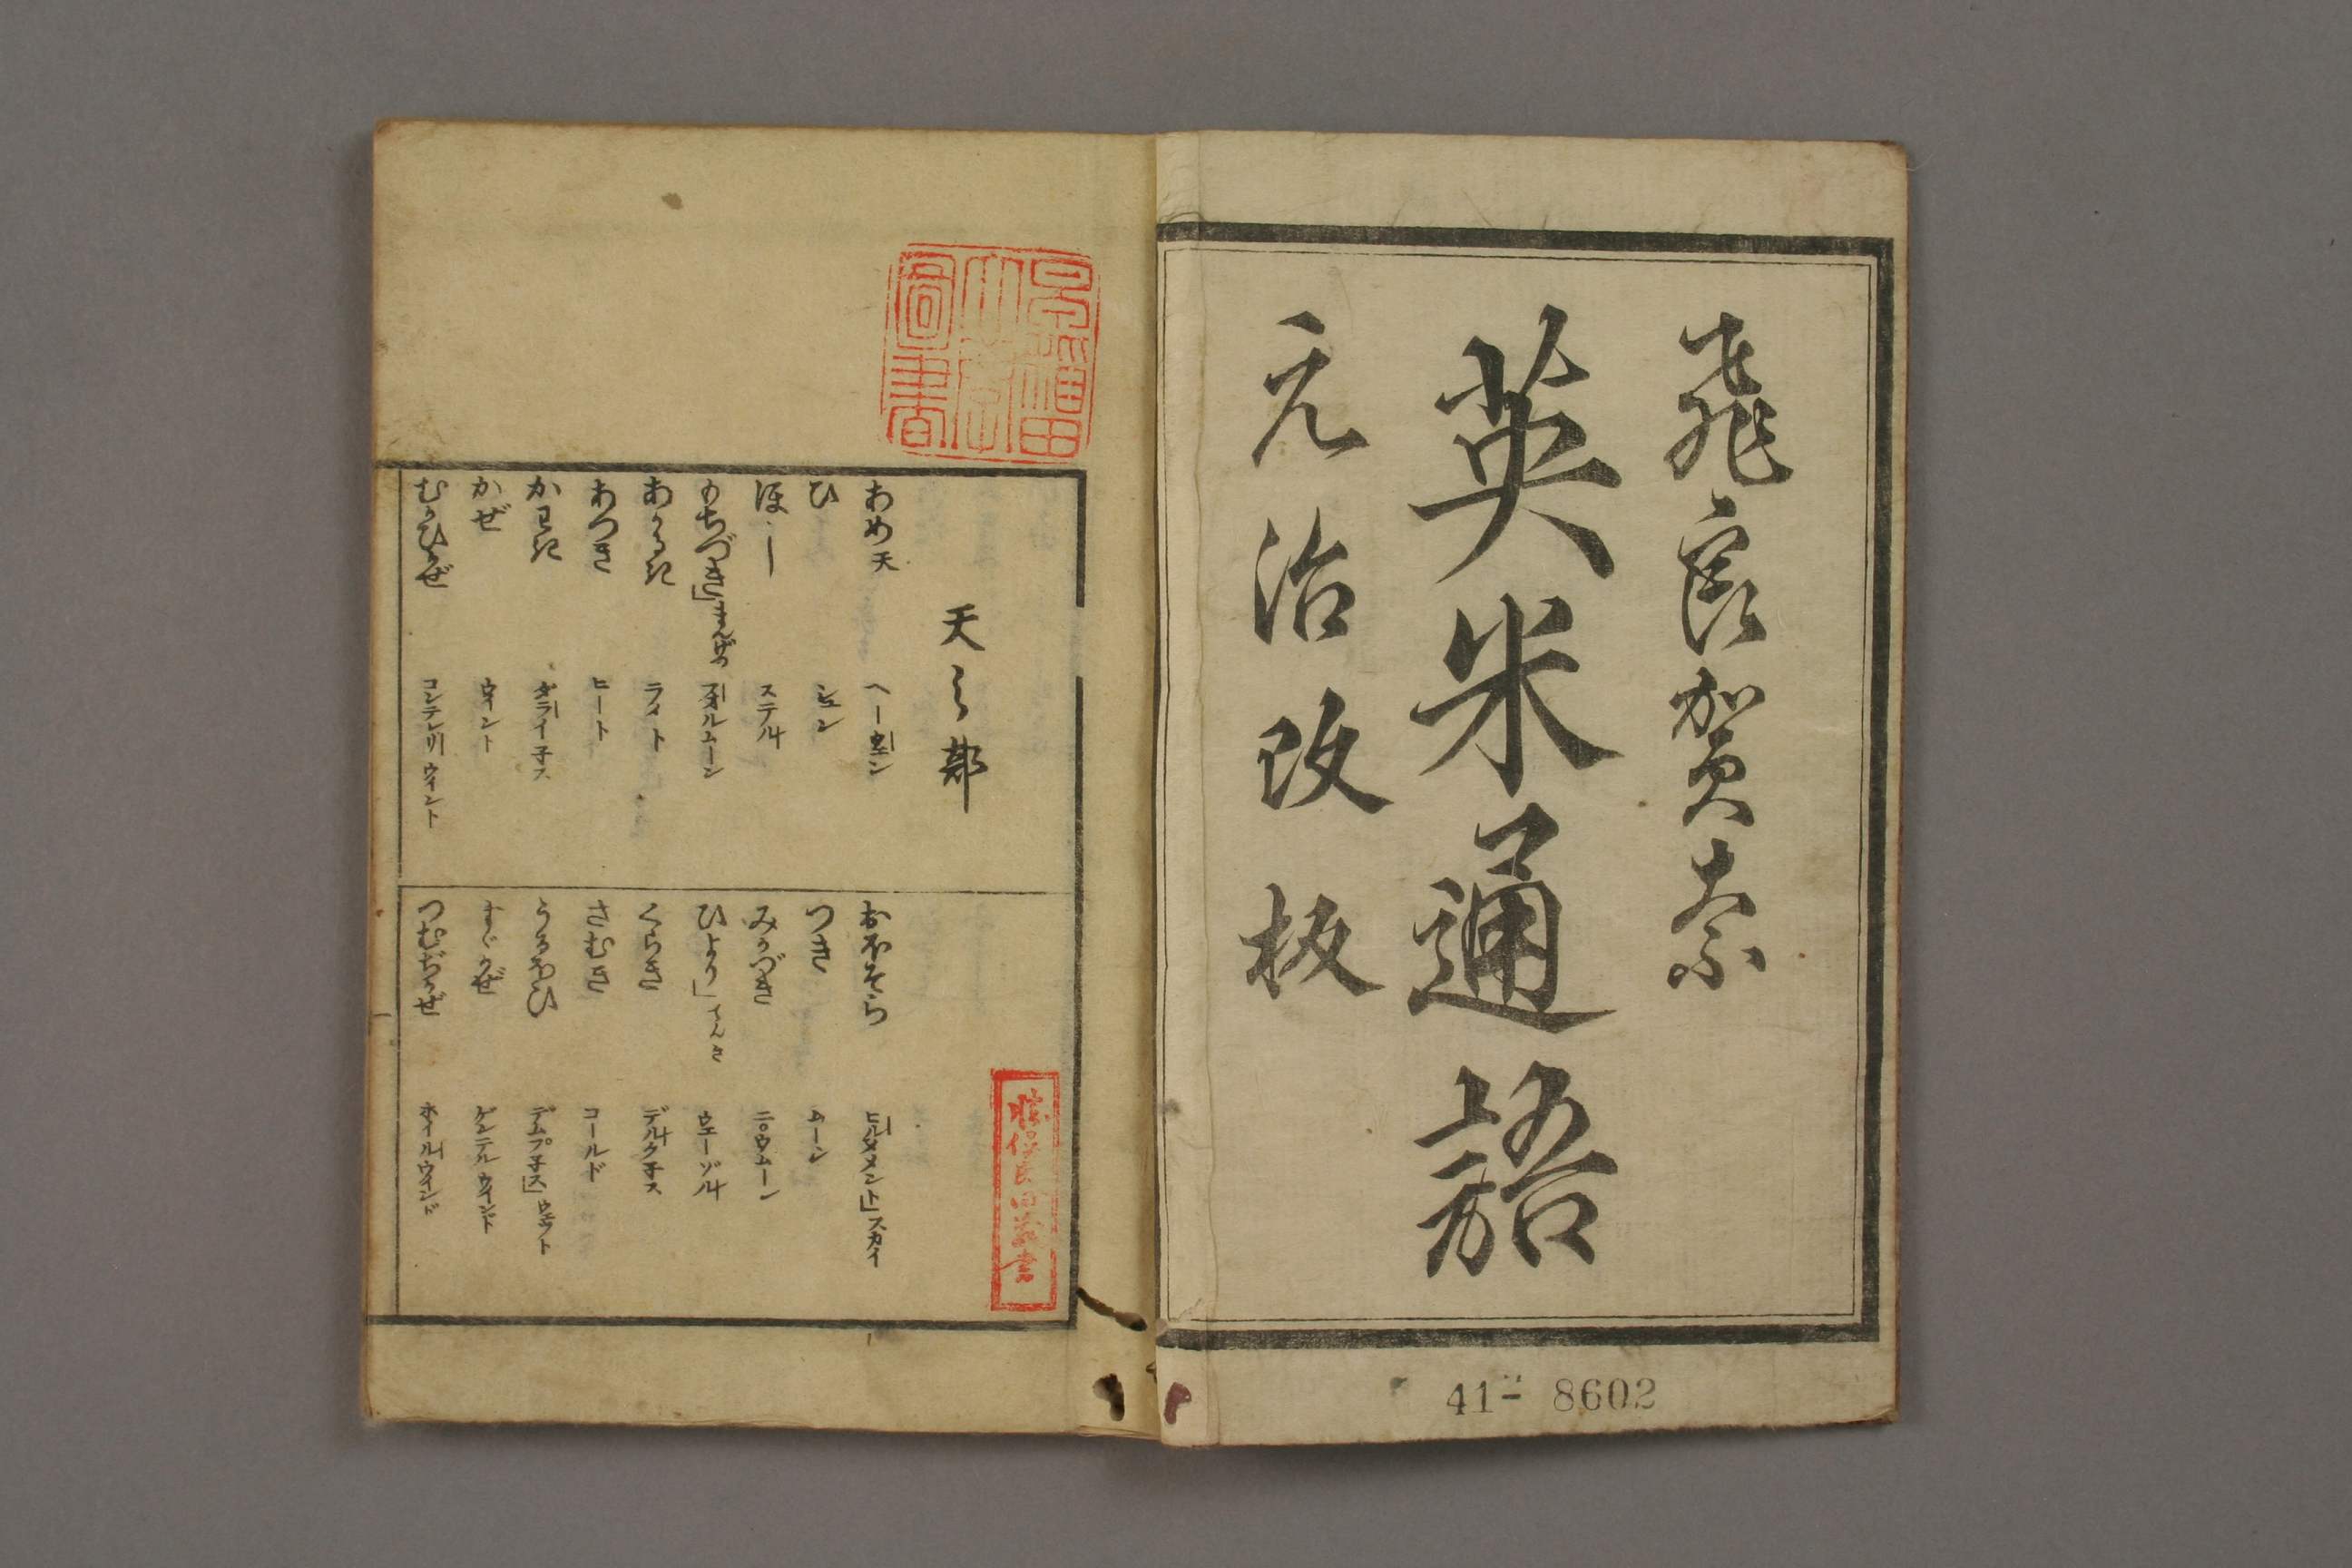 飛良賀奈
英米通語
元治改板
41-8602
天之部
あめ 天 ヘーウエン
ひ シユン
ほし ステル
もちづき」まんげつ フオルムーン
あかるき ライト
あつき ヒート
かわき ダライ子ス
かぜ ウイント
むかひかぜ コンテレリー ウイント
おほそら ヒルメメント」スカイ
つき ムーン
みかづき ニウムーン
ひより」てんき ウエーゾル
くらき デルク子ス
さむき コールド
うるほひ デムプ子ス」ウエツト
すゞかぜ ゲンテルウインド
つむぢかぜ ホイルウインド
圖書